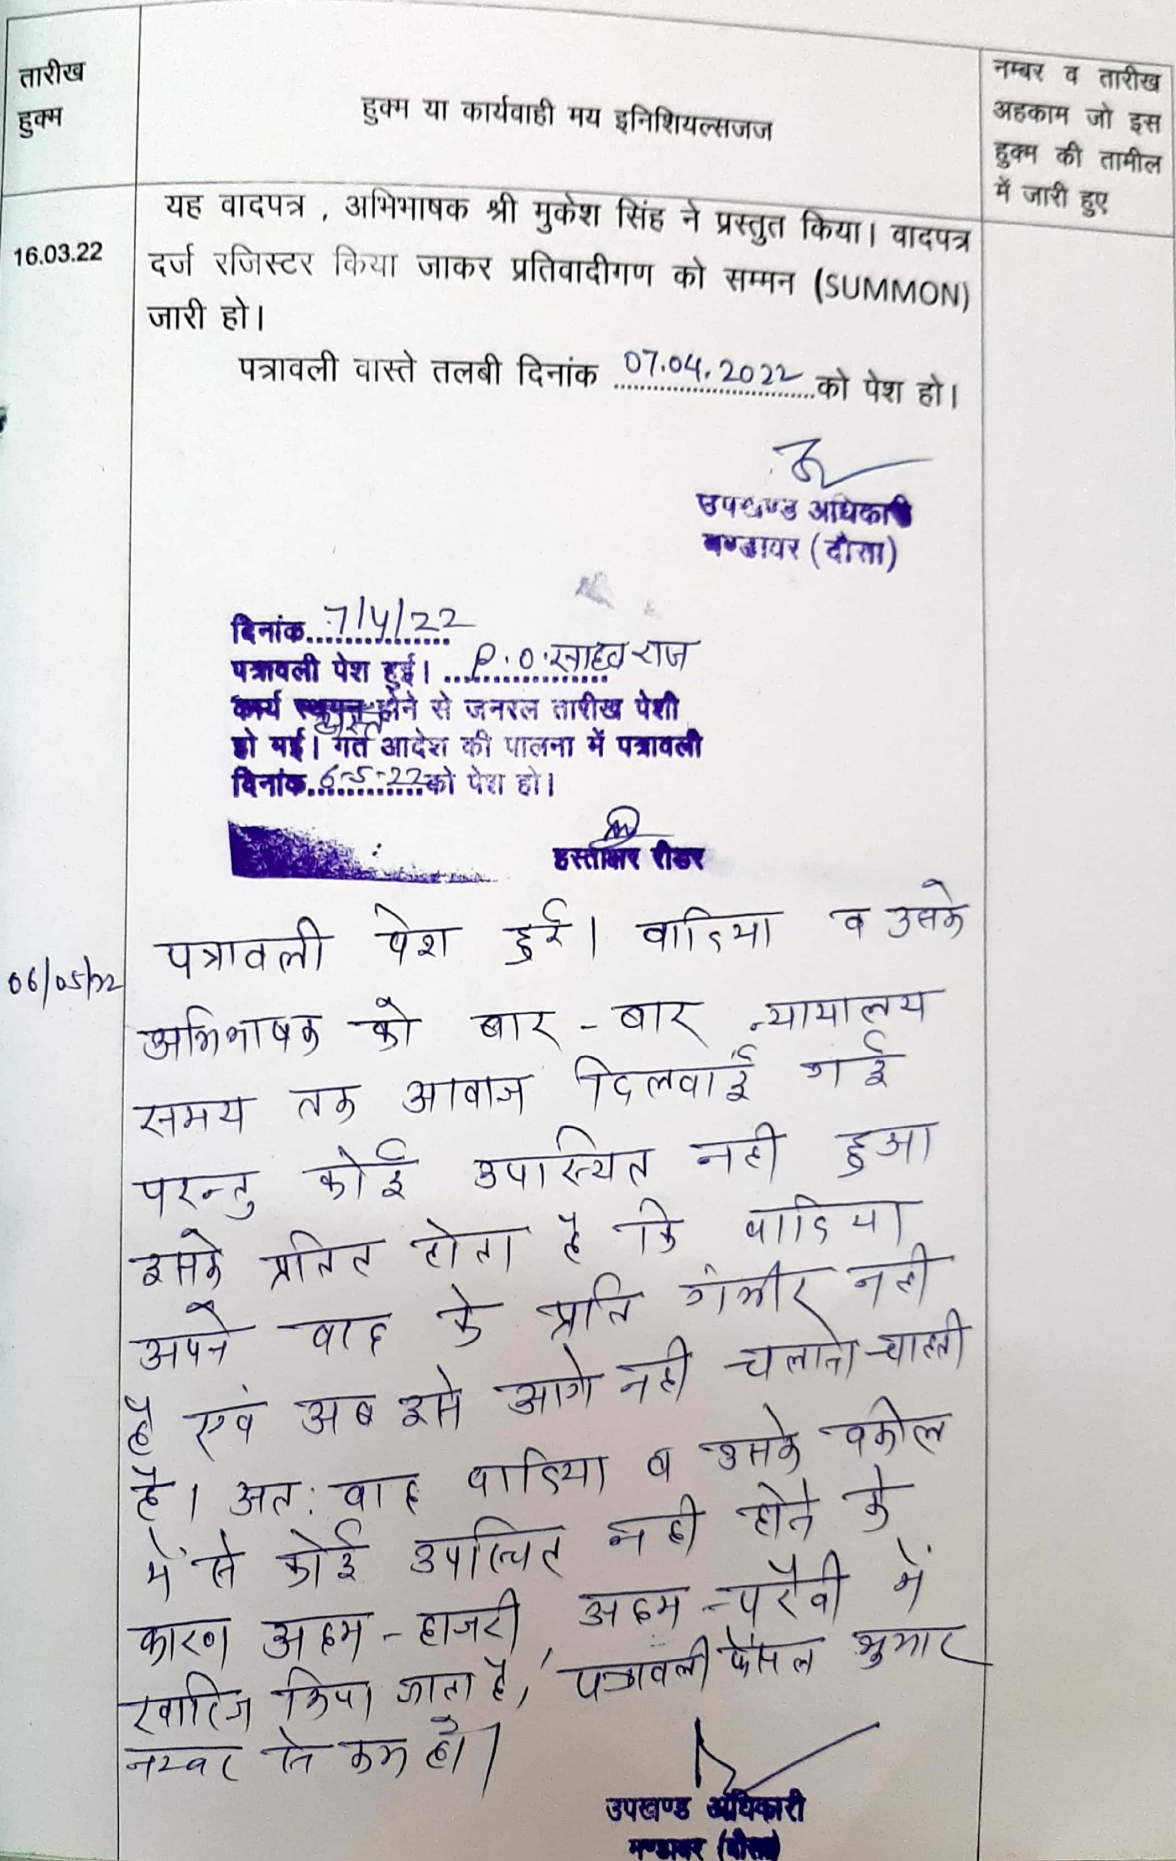 तारीख
हुक्म
हुक्म या कार्यवाही मय इनिशियल्सजज
नम्बर व तारीख
अहकाम जो इस
हुक्म की तामील
में जारी हुए
16.03.22
यह वादपत्र , अभिभाषक श्री मुकेश सिंह ने प्रस्तुत किया। वादपत्र
दर्ज रजिस्टर किया जाकर प्रतिवादीगण को सम्मन (SUMMON)
जारी हो।
पत्रावली वास्ते तलबी दिनांक 07.04.2022 को पेश हो।
उपखण्ड अधिकारी
मण्डावर (दौसा)
दिनांक 7/4/22
पत्रावली पेश हुई। P.O. साहब राज
कार्य होने से जनरल तारीख पेशी
हो गई। गत आदेश की पालना में पत्रावली
दिनांक 6-5-22 को पेश हो।
हस्ताक्षर रीडर
06/05/22
पत्रावली पेश हुई। वादिया व उसके
अभिभाषक को बार-बार न्यायालय
समय तक आवाज दिलवाई गई
परन्तु कोई उपस्थित नही हुआ
इसके प्रतित होता है कि वादिया
अपने वाद के प्रति गंभीर नही
है एवं अब इसे आगे नही चलाना चाहती
है। अतः वाद वादिया व उसके वकील
में से कोई उपस्थित नही होने के
कारण अदम-हाजरी, अदम-पैरवी में
खारिज किया जाता है, पत्रावली फैसल शुमार
नम्बर से कम हो।
उपखण्ड अधिकारी
मण्डावर (दौसा)